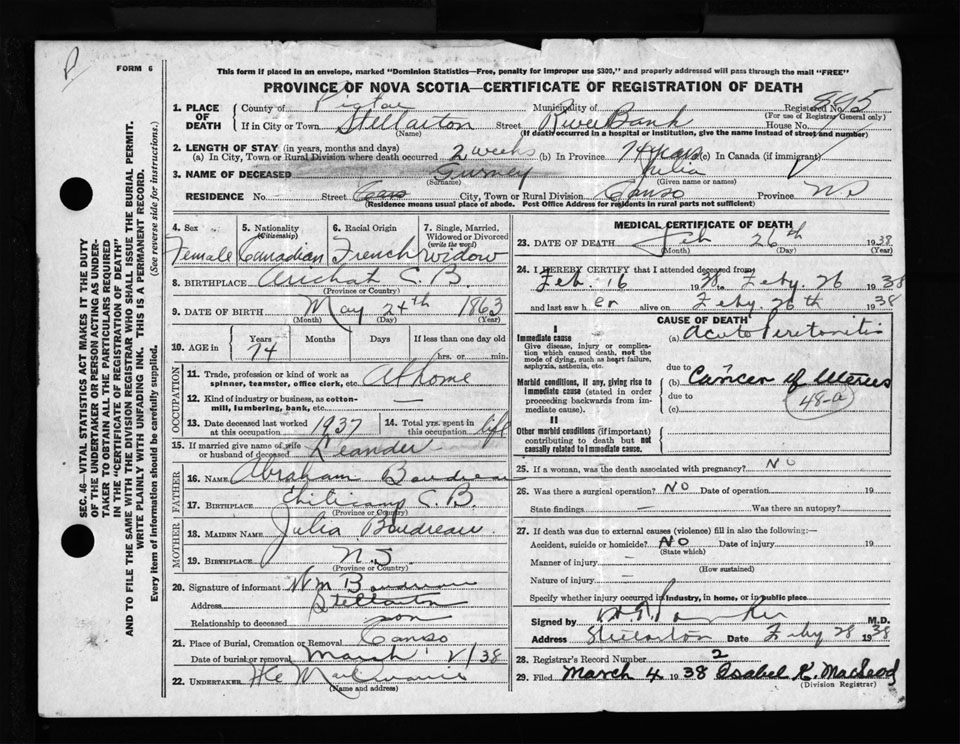 P
FORM 6
This form if placed in an envelope, marked "Dominion Statistics—Free, penalty for improper use $300," and properly addressed will pass through the mail "FREE"
PROVINCE OF NOVA SCOTIA—CERTIFICATE OF REGISTRATION OF DEATH
SEC. 46—VITAL STATISTICS ACT MAKES IT THE DUTY
OF THE UNDERTAKER OR PERSON ACTING AS UNDER-
TAKER TO OBTAIN ALL THE PARTICULARS REQUIRED
IN THE "CERTIFICATE OF REGISTRATION OF DEATH"
AND TO FILE THE SAME WITH THE DIVISION REGISTRAR WHO SHALL ISSUE THE BURIAL PERMIT.
WRITE PLAINLY WITH UNFADING INK. THIS IS A PERMANENT RECORD.
Every item of information should be carefully supplied. (See reverse side for instructions.)
1. PLACE OF DEATH County of Pictou Municipality of Registered No.
(For use of Registrar General only)
If in City or Town Stellarton Street River Bank House No.
(Name) (If death occurred in a hospital or institution, give the name instead of street and number)
2. LENGTH OF STAY (in years, months and days)
(a) In City, Town or Rural Division where death occurred 2 weeks (b) In Province 74 years (c) In Canada (if immigrant)
3. NAME OF DECEASED Gurney Julia
(Surname) (Given name or names)
RESIDENCE No. Street City, Town or Rural Division Canso Province N S
(Residence means usual place of abode. Post Office Address for residents in rural parts not sufficient)
4. Sex 5. Nationality (Citizenship) 6. Racial Origin 7. Single, Married, Widowed or Divorced (write the word)
Female Canadian French Widow
8. BIRTHPLACE Arichat C. B.
(Province or Country)
9. DATE OF BIRTH May 24th 1863
(Month) (Day) (Year)
10. AGE in Years Months Days If less than one day
74 hrs. or min.
OCCUPATION
11. Trade, profession or kind of work as spinner, teamster, office clerk, etc. At home
12. Kind of industry or business, as cotton-mill, lumbering, bank, etc. —
13. Date deceased last worked at this occupation 1937 14. Total yrs. spent in this occupation life
15. If married give name of wife or husband of deceased Leander
FATHER
16. NAME Abraham Boudreau
17. BIRTHPLACE C. B.
(Province or Country)
MOTHER
18. MAIDEN NAME Julia Boudreau
19. BIRTHPLACE N. S.
(Province or Country)
20. Signature of informant Wm Boudreau
Address Stellarton
Relationship to deceased son
21. Place of Burial, Cremation or Removal Canso
Date of burial or removal March 1/38
22. UNDERTAKER
(Name and address)
MEDICAL CERTIFICATE OF DEATH
23. DATE OF DEATH Feb 26th 1938
(Month) (Day) (Year)
24. I HEREBY CERTIFY that I attended deceased from
Feb. 16 1938 to Feby. 26 1938
and last saw her alive on Feby. 26th 1938
CAUSE OF DEATH
I
Immediate cause
Give disease, injury or complication which caused death, not the mode of dying, such as heart failure, asphyxia, asthenia, etc.
(a) Acute Peritonitis
due to
Morbid conditions, if any, giving rise to immediate cause (stated in order proceeding backwards from immediate cause).
(b) Cancer of Uterus
due to 48-a
(c)
II
Other morbid conditions (if important) contributing to death but not causally related to immediate cause.
25. If a woman, was the death associated with pregnancy? No
26. Was there a surgical operation? No Date of operation 19
State findings — Was there an autopsy?
27. If death was due to external causes (violence) fill in also the following:—
Accident, suicide or homicide? No Date of injury 19
(State which)
Manner of injury —
(How sustained)
Nature of injury —
Specify whether injury occurred in industry, in home, or in public place
Signed by M.D.
Address Stellarton Date Feby 28 1938
28. Registrar's Record Number 2
29. Filed March 4 1938 Isabel K. MacLeod
(Division Registrar)